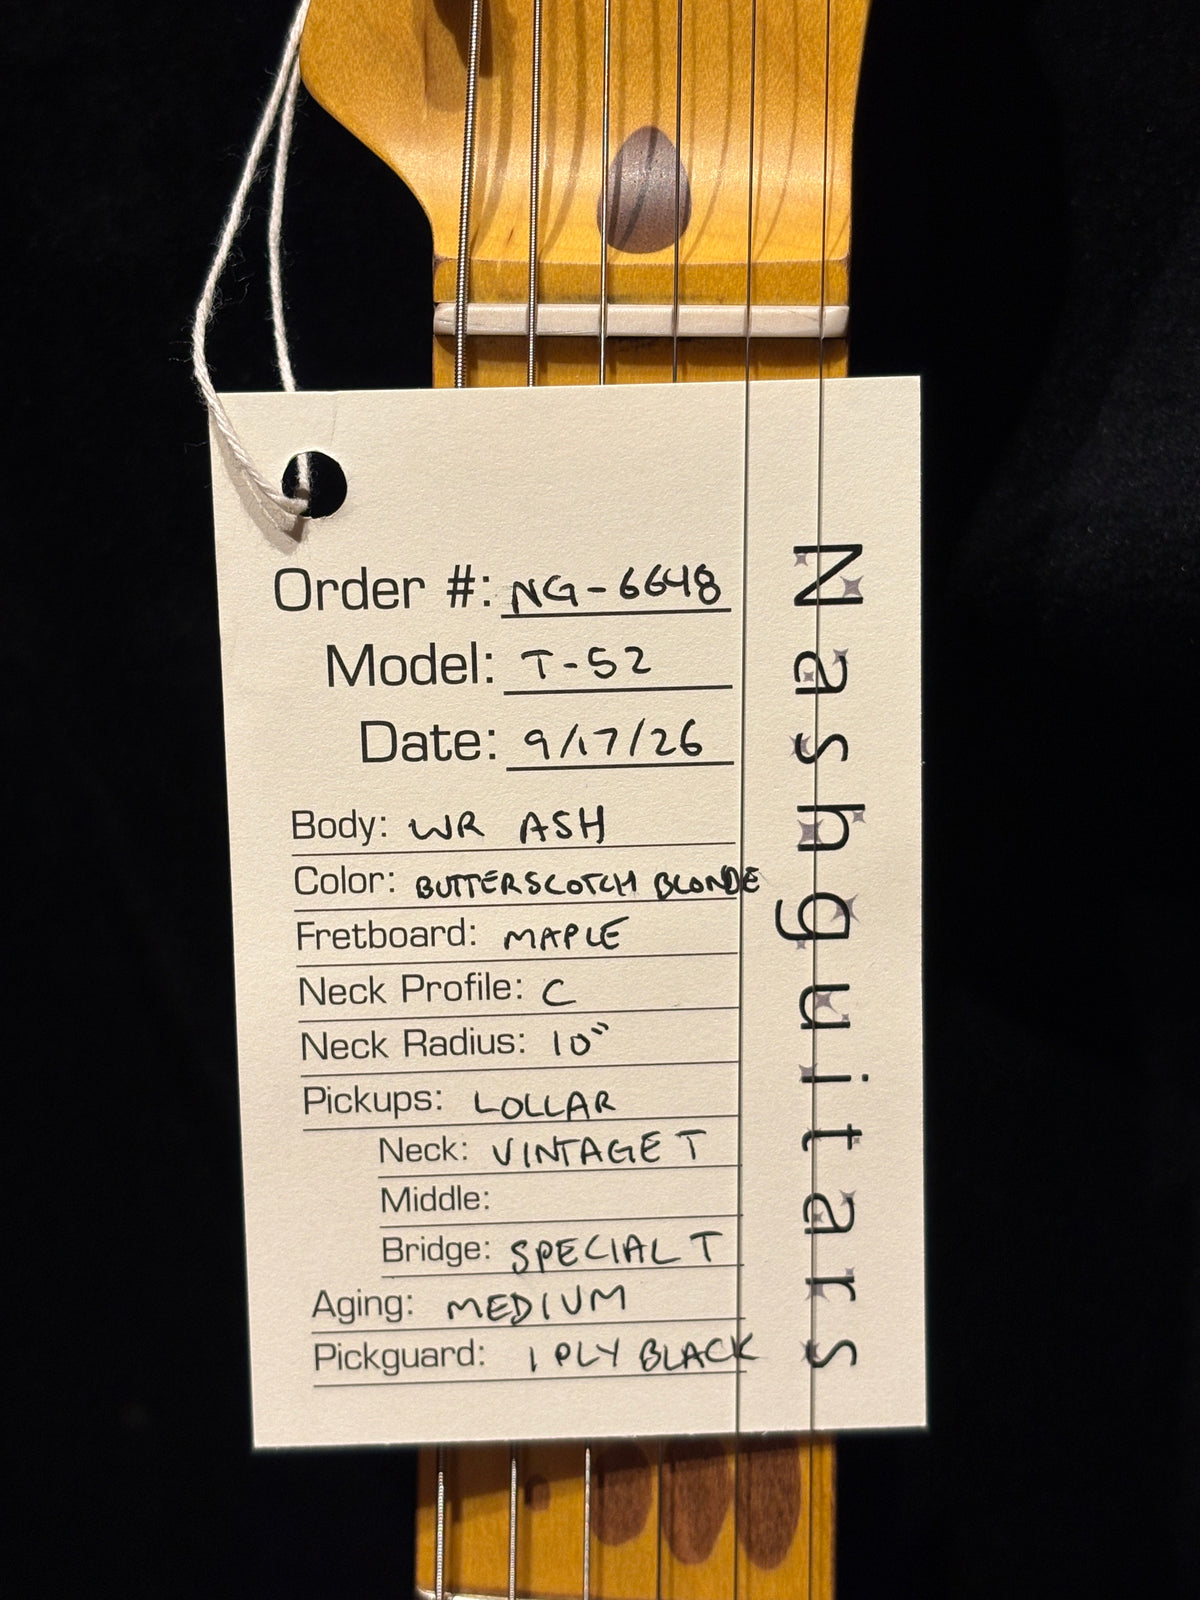 Order #: NG-6648
Model: T-52
Date: 9/17/26
Body: WR ASH
Color: BUTTERSCOTCH BLONDE
Fretboard: MAPLE
Neck Profile: C
Neck Radius: 10"
Pickups: LOLLAR
Neck: VINTAGE T
Middle:
Bridge: SPECIAL T
Aging: MEDIUM
Pickguard: 1 PLY BLACK
Nashguitars